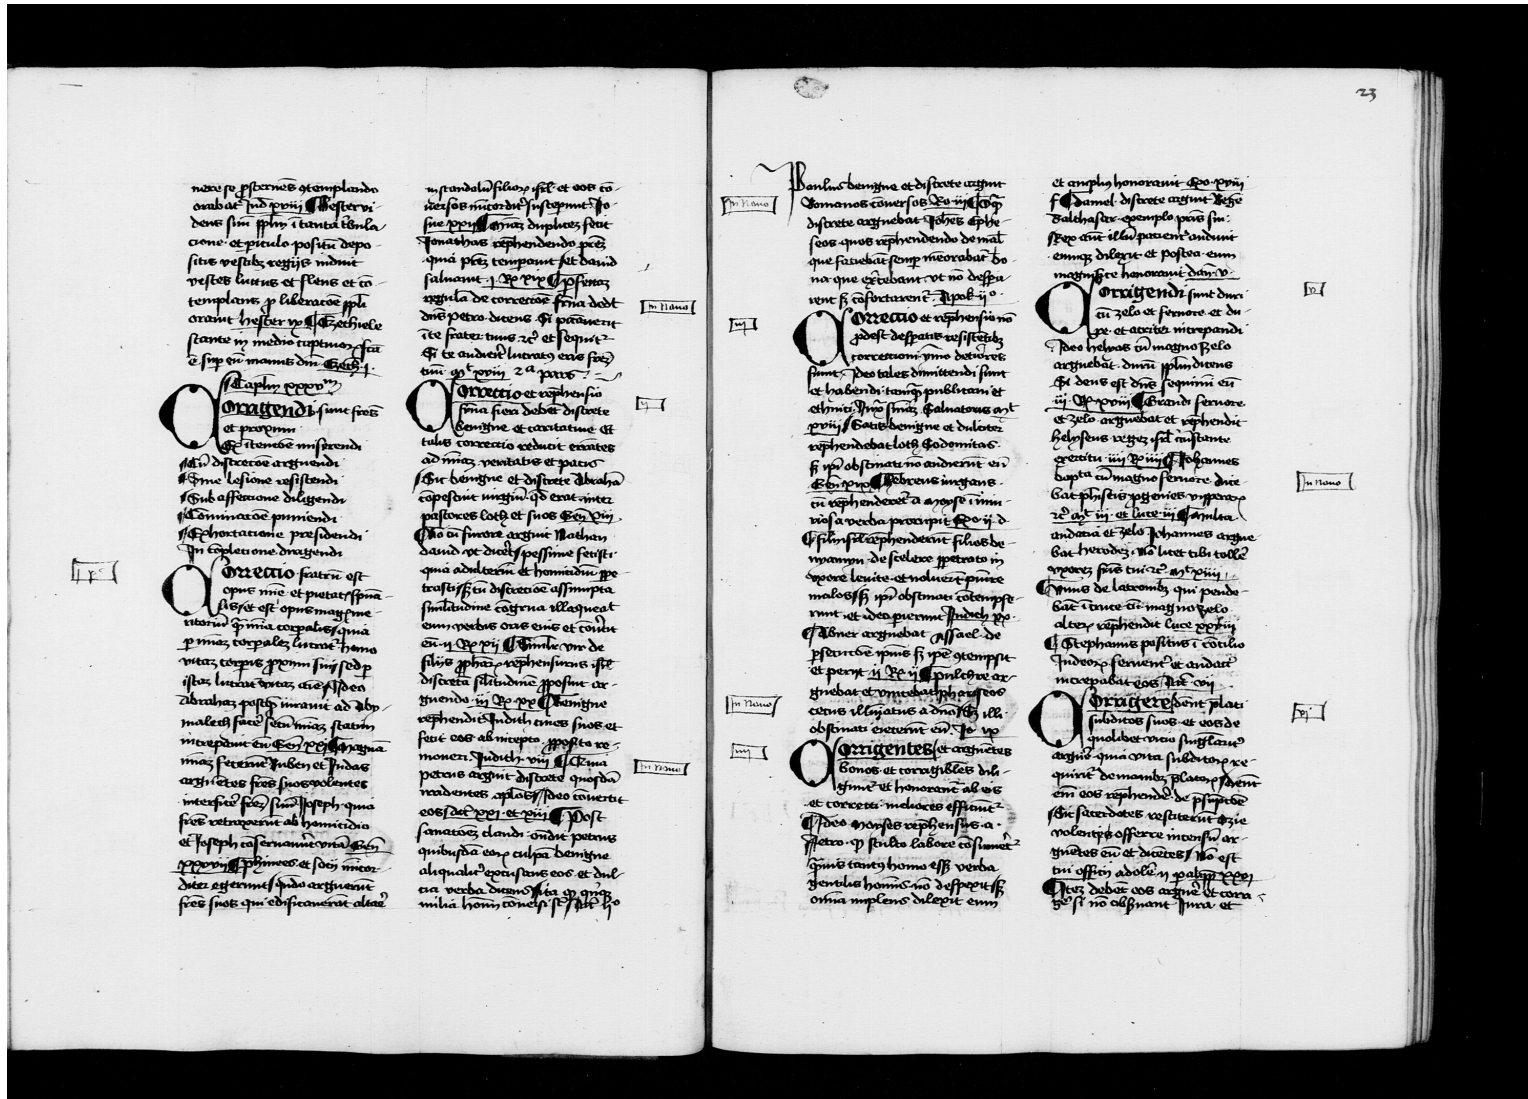 nere se prosternens contemplando
orabat Iud xviii ¶ Hester vi-
dens suum populum in tanta tribula
cione et periculo positum depo-
sitis vestibus regijs induit
vestes luctus et flens et con-
templans pro liberacione populi
oravit hester ix ¶ Ezechiele
stante in medio captivorum facta
est super eum manus domini Ezech i
Capitulum xxxvm
Corrigendi sunt fratres
et proximi
Cum discrecione arguendi
Sine lesione resistendi
Sub affectione diligendi
Cominacione puniendi
Exhortacione presidendi
In completione dirigendi
Correccio fratrum est
opus misericordie et pietatis spiritua
lis et est opus magis me
ritorium quam misericordia corporalis quia
per misericordiam corporalem lucratur homo
vitam corporis proximi sui sed per
istam lucratur vitam anime Ideo
Abraham postquam iuravit ad Aby-
malech facere secum misericordiam statim
increpavit eum Gen xxi ¶ Magnam
misericordiam fecerunt Ruben et Iudas
arguentes fratres suos volentes
interficere fratrem suum Ioseph quia
fratres retraxerunt ab homicidio
et Ioseph conservaverunt vitam Gen
xxxvii ¶ Phinees et socii misericor-
diter egerunt quando arguerunt
fratres suos qui edificaverant altare
in scandalum filiorum israel et eos con-
versos misericorditer susceperunt Io-
sue xxii ¶ Misericordiam duplicem fecit
Ionathas reprehendendo patrem
quia patrem temperavit set david
salvavit i Rx xix ¶ Perfectam
regulam de correctione fraterna dedit
dominus petro dicens Si peccaverit
in te frater tuus etc et sequitur
Si te audierit lucratus eris fratrem
tuum Mt xviii 2a pars
Correccio et reprehensio
fraterna fieri debet discrete
benigne et caritative Et
talis correccio reducit errantes
ad viam veritatis et pacis
Sic benigne et discrete Abraham
compescuit iurgium quod erat inter
pastores loth et suos Gen xiii
¶ Non cum furore arguit Nathan
david ut diceret pessime fecisti
quia adulterium et homicidium perpe
trasti set cum discretione assumpta
similitudine congrua illaqueavit
eum verbis oris eius et convertit
eum ii Rx xii ¶ Similiter vir de
filijs prophetarum reprehensurus israel
discretam similitudinem proposuit ar-
guendo iii Rx xx ¶ Benigne
reprehendit Iudith cives suos et
fecit eos ab incepto proposito re-
moveri Iudith viii ¶
petrus arguit discrete quosdam
irridentes apostolos Ideo convertit
eos act xxi et xiii ¶ Post
sanationem claudi ostendit petrus
quibusdam eorum culpam benigne
aliqualiter excusans eos et dul-
cia verba dicens ita quod quinque
milia hominum conversi sunt Act
In Novo
ij
In Novo
23
Paulus benigne et discrete arguit
Romanos conversos Ro ii
discrete arguebat Iohannes Ephe-
seos quos reprehendendo de malis
que faciebant semper memorabat bo-
na que exercebant ut non despera-
rent sed confortarentur Apok iio
Correccio et reprehensio non
prodest desperatis resistentibus
correctioni ymmo deteriores
sunt Ideo tales dimittendi sunt
et habendi tamquam publicani et
ethnici iuxta sententiam Salvatoris Mt
xviii Satis benigne et dulciter
reprehendebat loth Sodomitas
sed ipsi obstinati non audierunt eum
Gen xix ¶ Hebreus iurgans
cum reprehenderetur a moyse in iniu-
riosa verba prorupit Exo ii d
¶ filii israel reprehenderunt filios be-
nyamyn de scelere perpetrato in
uxore levite et noluerunt punire
malos sed ipsi obstinati contempse-
runt et ideo perierunt Iudicum xx
¶ Abner arguebat Assael de
persecucione ipsius sed ipse contempsit
et periit ii Rx ii ¶ Pulchre ar-
guebat et vincebat phariseos
cecus illuminatus a domino sed illi
obstinati eiecerunt eum Io ix
Corrigentes et arguentes
bonos et corrigibiles dili-
guntur et honorantur ab eis
et correcti meliores efficiuntur
¶ Ideo Moyses reprehensus a
Iietro quod stulto labore consumeretur
quamvis tantus homo esset verba
gentilis hominis non despexit sed
omnia implens dilexit eum
In Novo
iij
In Novo
iiij
et amplius honoravit Exo xviii
¶ Daniel discrete arguit Regem
Balthasar exemplo patris sui
Rex autem illum pacienter audivit
eumque dilexit et postea eum
magnifice honoravit dan v
Corrigendi sunt duri
cum zelo et fervore et du-
re et acriter increpandi
Ideo helyas cum magno zelo
arguebat durum populum dicens
Si deus est dominus sequimini eum
iii Rx xviii ¶ Grandi fervore
et zelo arguebat et reprehendit
helyseus regem israel circumstante
exercitu iiii Rx iii ¶ Iohannes
baptista cum magno fervore dice-
bat phariseis progenies viperarum
etc Mt iii et luce iii ¶ Multa
audacia et zelo Iohannes argue-
bat herodem Non licet tibi tollere
uxorem fratris tui etc Mt xiiii
¶ Unus de latronibus qui pende-
bat in cruce cum magno zelo
alterum reprehendit luce xxiii
¶ Stephanus positus in concilio
Iudeorum ferventer et audacter
increpabat eos Act vii
Corrigere debent prelati
subditos suos et eos de
quolibet vicio singlariter
arguere quia vita subditorum re-
quiritur de manibus prelatorum Debent
enim eos reprehendere de presumptione
Sic sacerdotes restiterunt Ozie
volentes offerre incensum ar-
guentes eum et dicentes Non est
tui officii adolere ii paralip xxvi
¶ Item debet eos arguere et corri-
gere si non observant Iura et
v
In Novo
vj